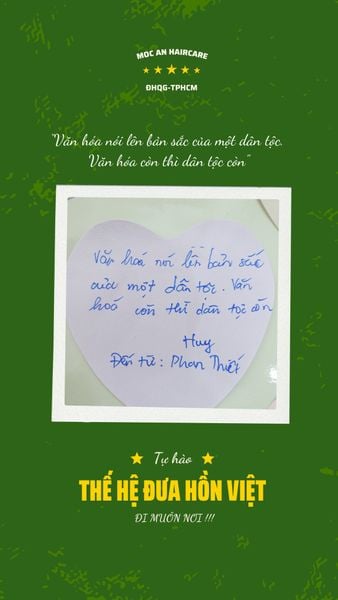 MOC AN HAIRCARE
ĐHQG-TPHCM
"Văn hóa nói lên bản sắc của một dân tộc.
Văn hóa còn thì dân tộc còn"
Văn hoá nói lên bản sắc
của một dân tộc. Văn
hoá còn thì dân tộc còn
Huy
Đến từ: Phan Thiết
Tự hào
THẾ HỆ ĐƯA HỒN VIỆT
ĐI MUÔN NƠI !!!